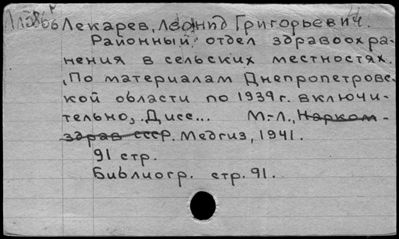 Лекарев, Леонид Григорьевич.
Районный отдел здравоохра-
нения в сельских местностях.
По материалам Днепропетровс-
кой области по 1939 г. включи-
тельно, Дисс... М.-Л., Нарком-
здрав СССР. Медгиз, 1941.
91 стр.
Библиогр. стр. 91.